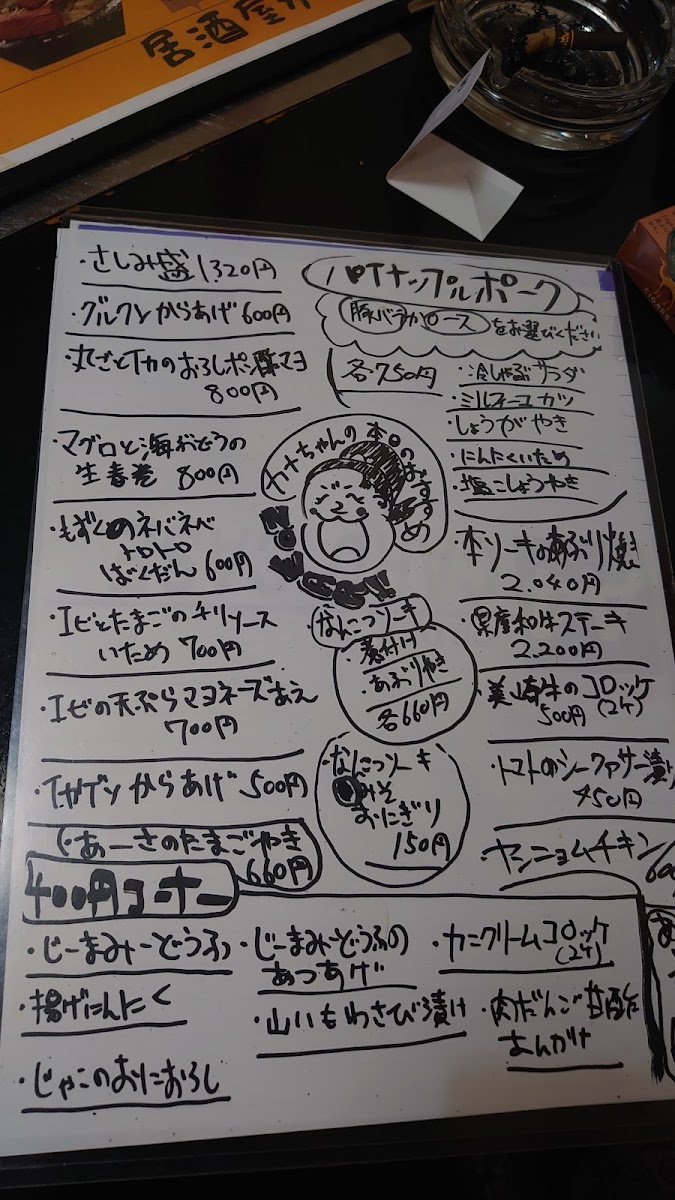 居酒屋
・さしみ盛 1,320円
・グルクンからあげ 600円
・丸ごとイカのおろしポン酢マヨ
800円
・マグロと海ぶどうの
生春巻 800円
・もずくのネバネバ
トロトロ
ばくだん 600円
・エビとたまごのチリソース
いため 700円
・エビの天ぷらマヨネーズあえ
700円
・イカゲソからあげ 500円
・あーさのたまごやき
660円
パイナップルポーク
豚バラかロースをお選びください
各750円
・冷しゃぶサラダ
・ミルフィーユカツ
・しょうがやき
・にんにくいため
・塩こしょうやき
カナちゃんの本日のおすすめ
・なんこつソーキ
・煮付け
・あぶりやき
各660円
・なんこつソーキ
みそ
おにぎり
150円
・本ソーキのあぶり焼き
2,040円
・県産和牛ステーキ
2,200円
・美崎牛のコロッケ
500円 (2ケ)
・トマトのシークァーサー漬け
450円
・ヤンニョムチキン
400円コーナー
・じーまみーどうふ
・揚げにんにく
・じゃこのおにおろし
・じーまみーどうふの
あつあげ
・山いもわさび漬け
・カニクリームコロッケ
(2ケ)
・肉だんご甘酢
あんかけ